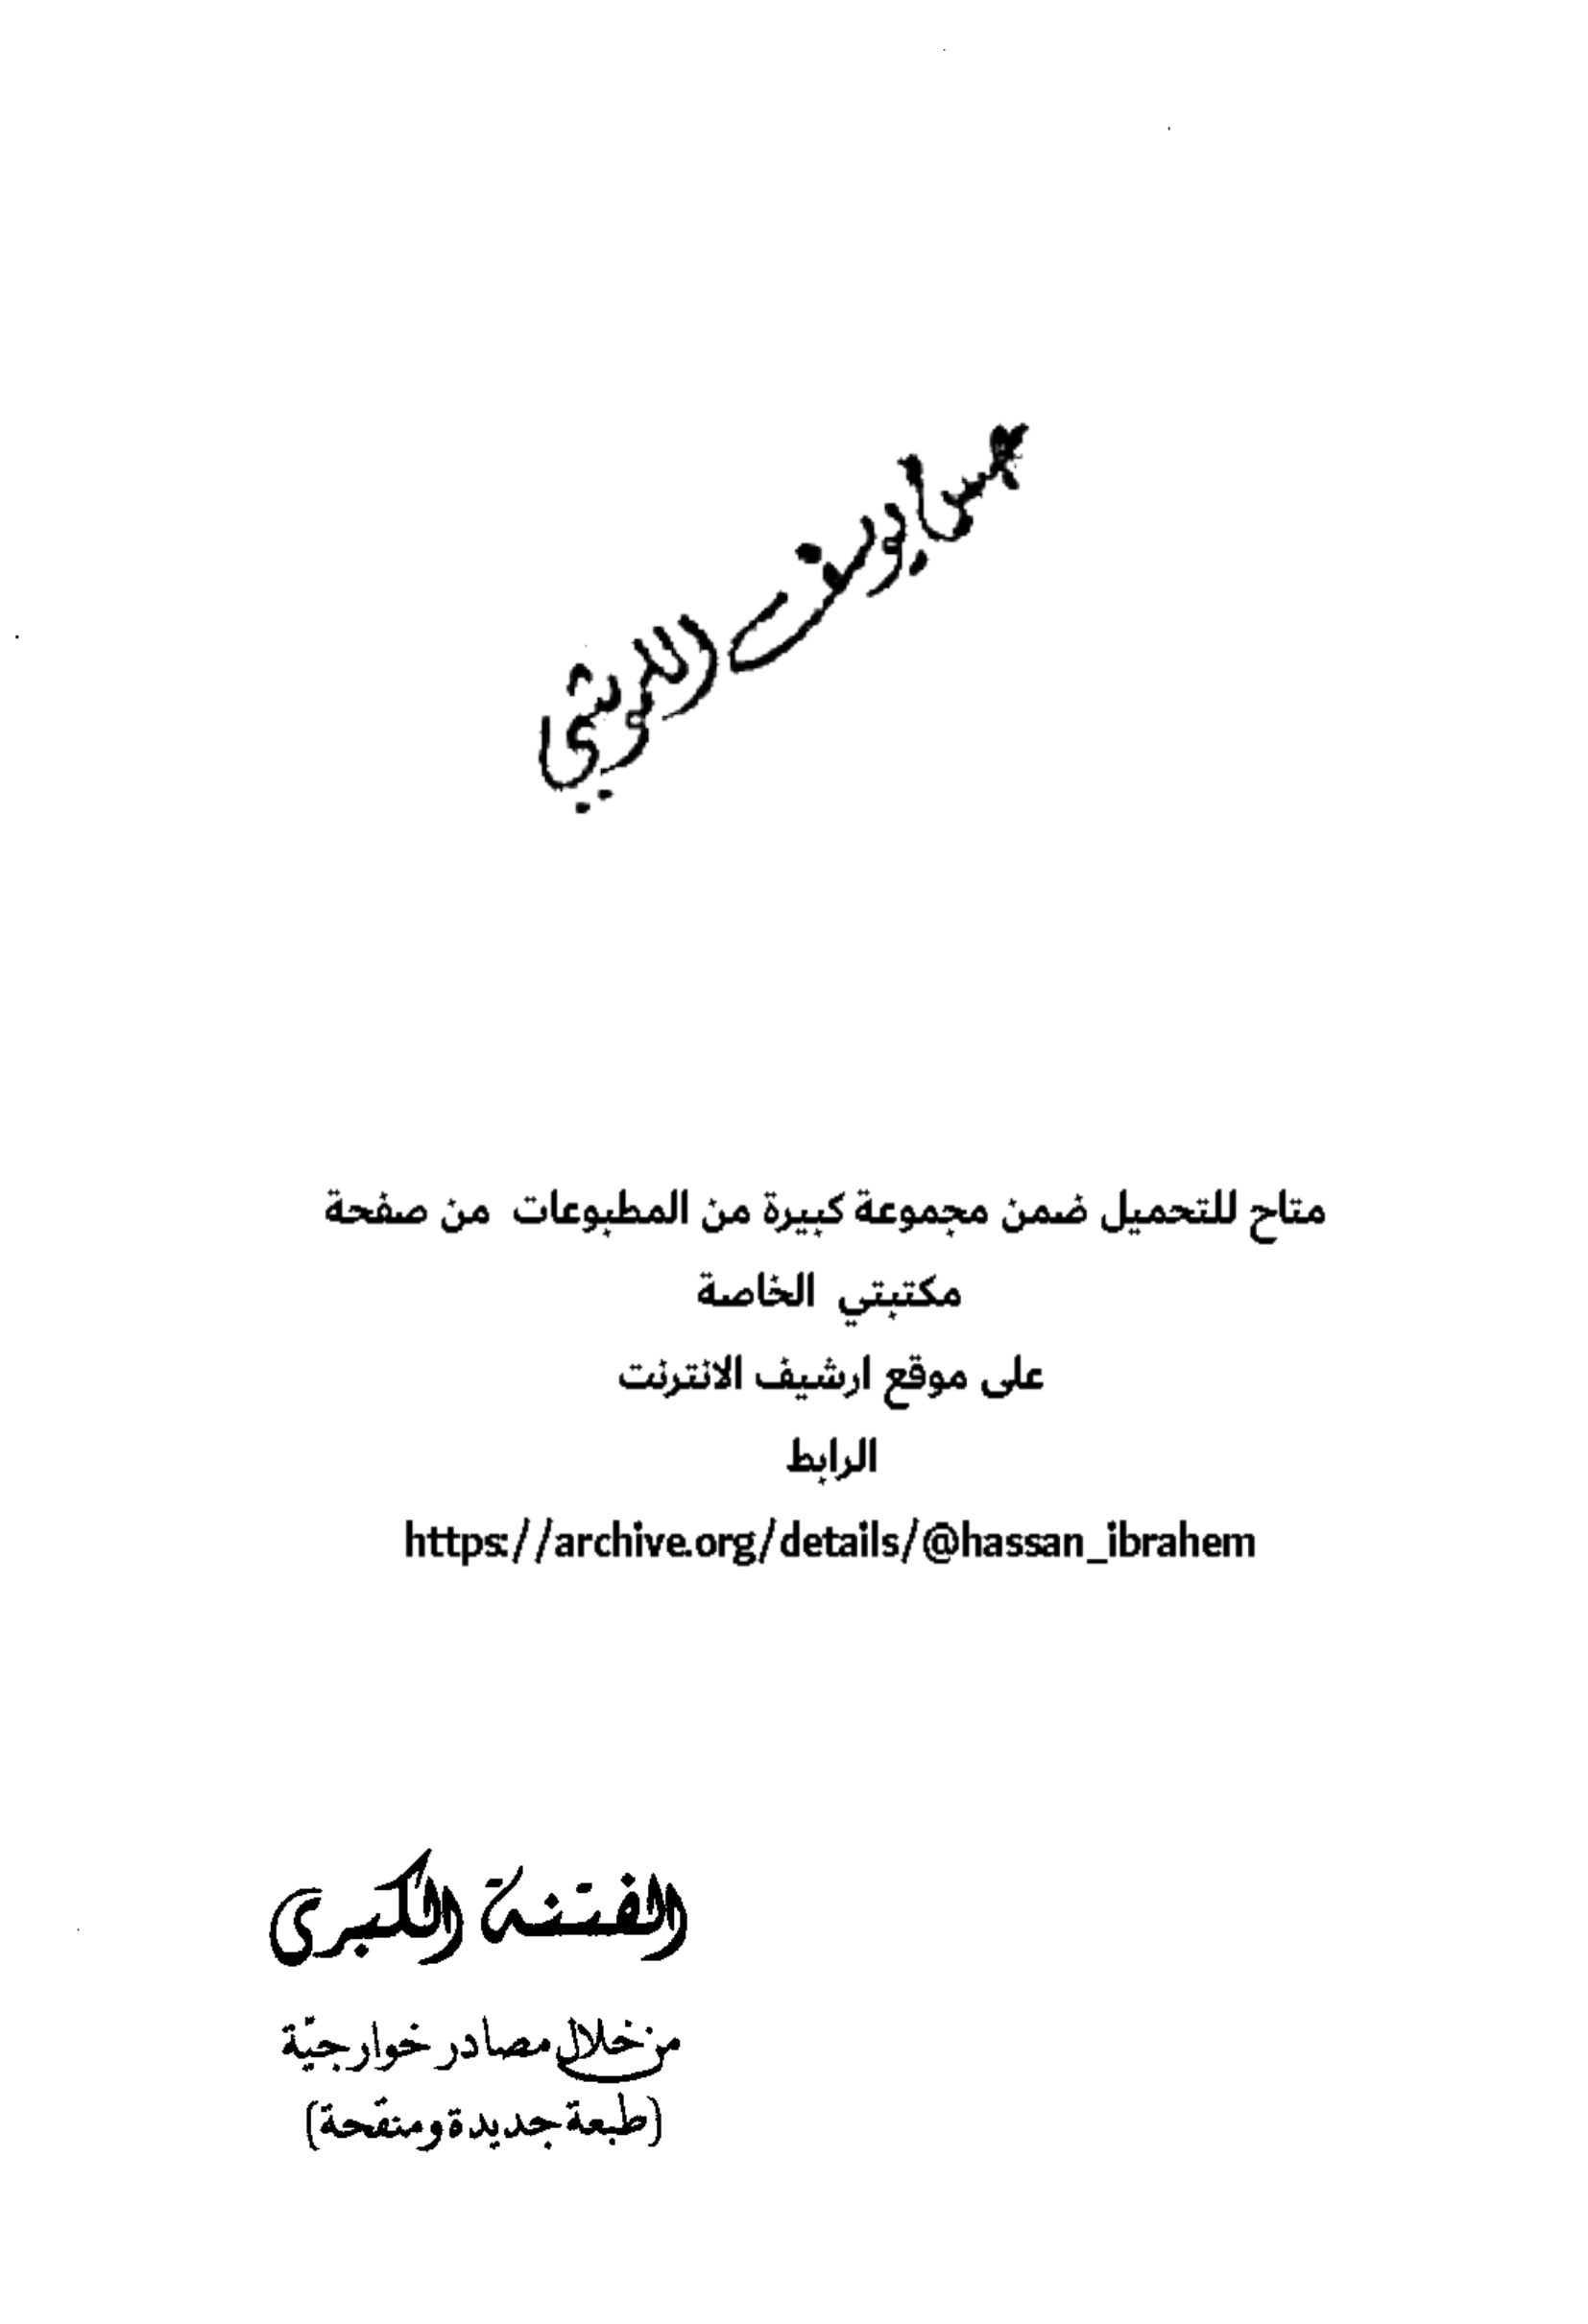 يوسف
متاح للتحميل ضمن مجموعة كبيرة من المطبوعات من صفحة
مكتبتي الخاصة
على موقع ارشيف الانترنت
الرابط
https://archive.org/details/@hassan_ibrahem
الفتنة الكبرى
من خلال مصادر خوارجيّة
(طبعة جديدة ومنقحة)